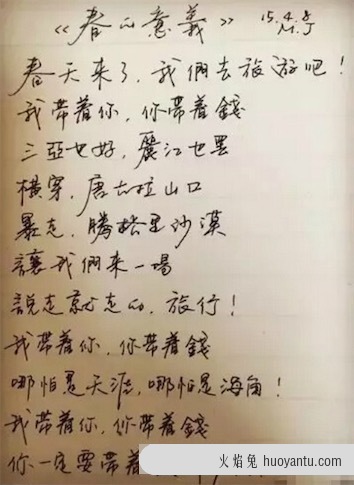 《春的意義》 15.4.8
M.J
春天来了,我們去旅游吧!
我带着你,你带着錢
三亞也好,麗江也罢
橫穿,唐古拉山口
暴走,腾格里沙漠
讓我們来一場
説走就走的,旅行!
我带着你,你带着錢
哪怕是天涯,哪怕是海角!
我带着你,你带着錢
你一定要带着
火焰兔 huoyantu.com